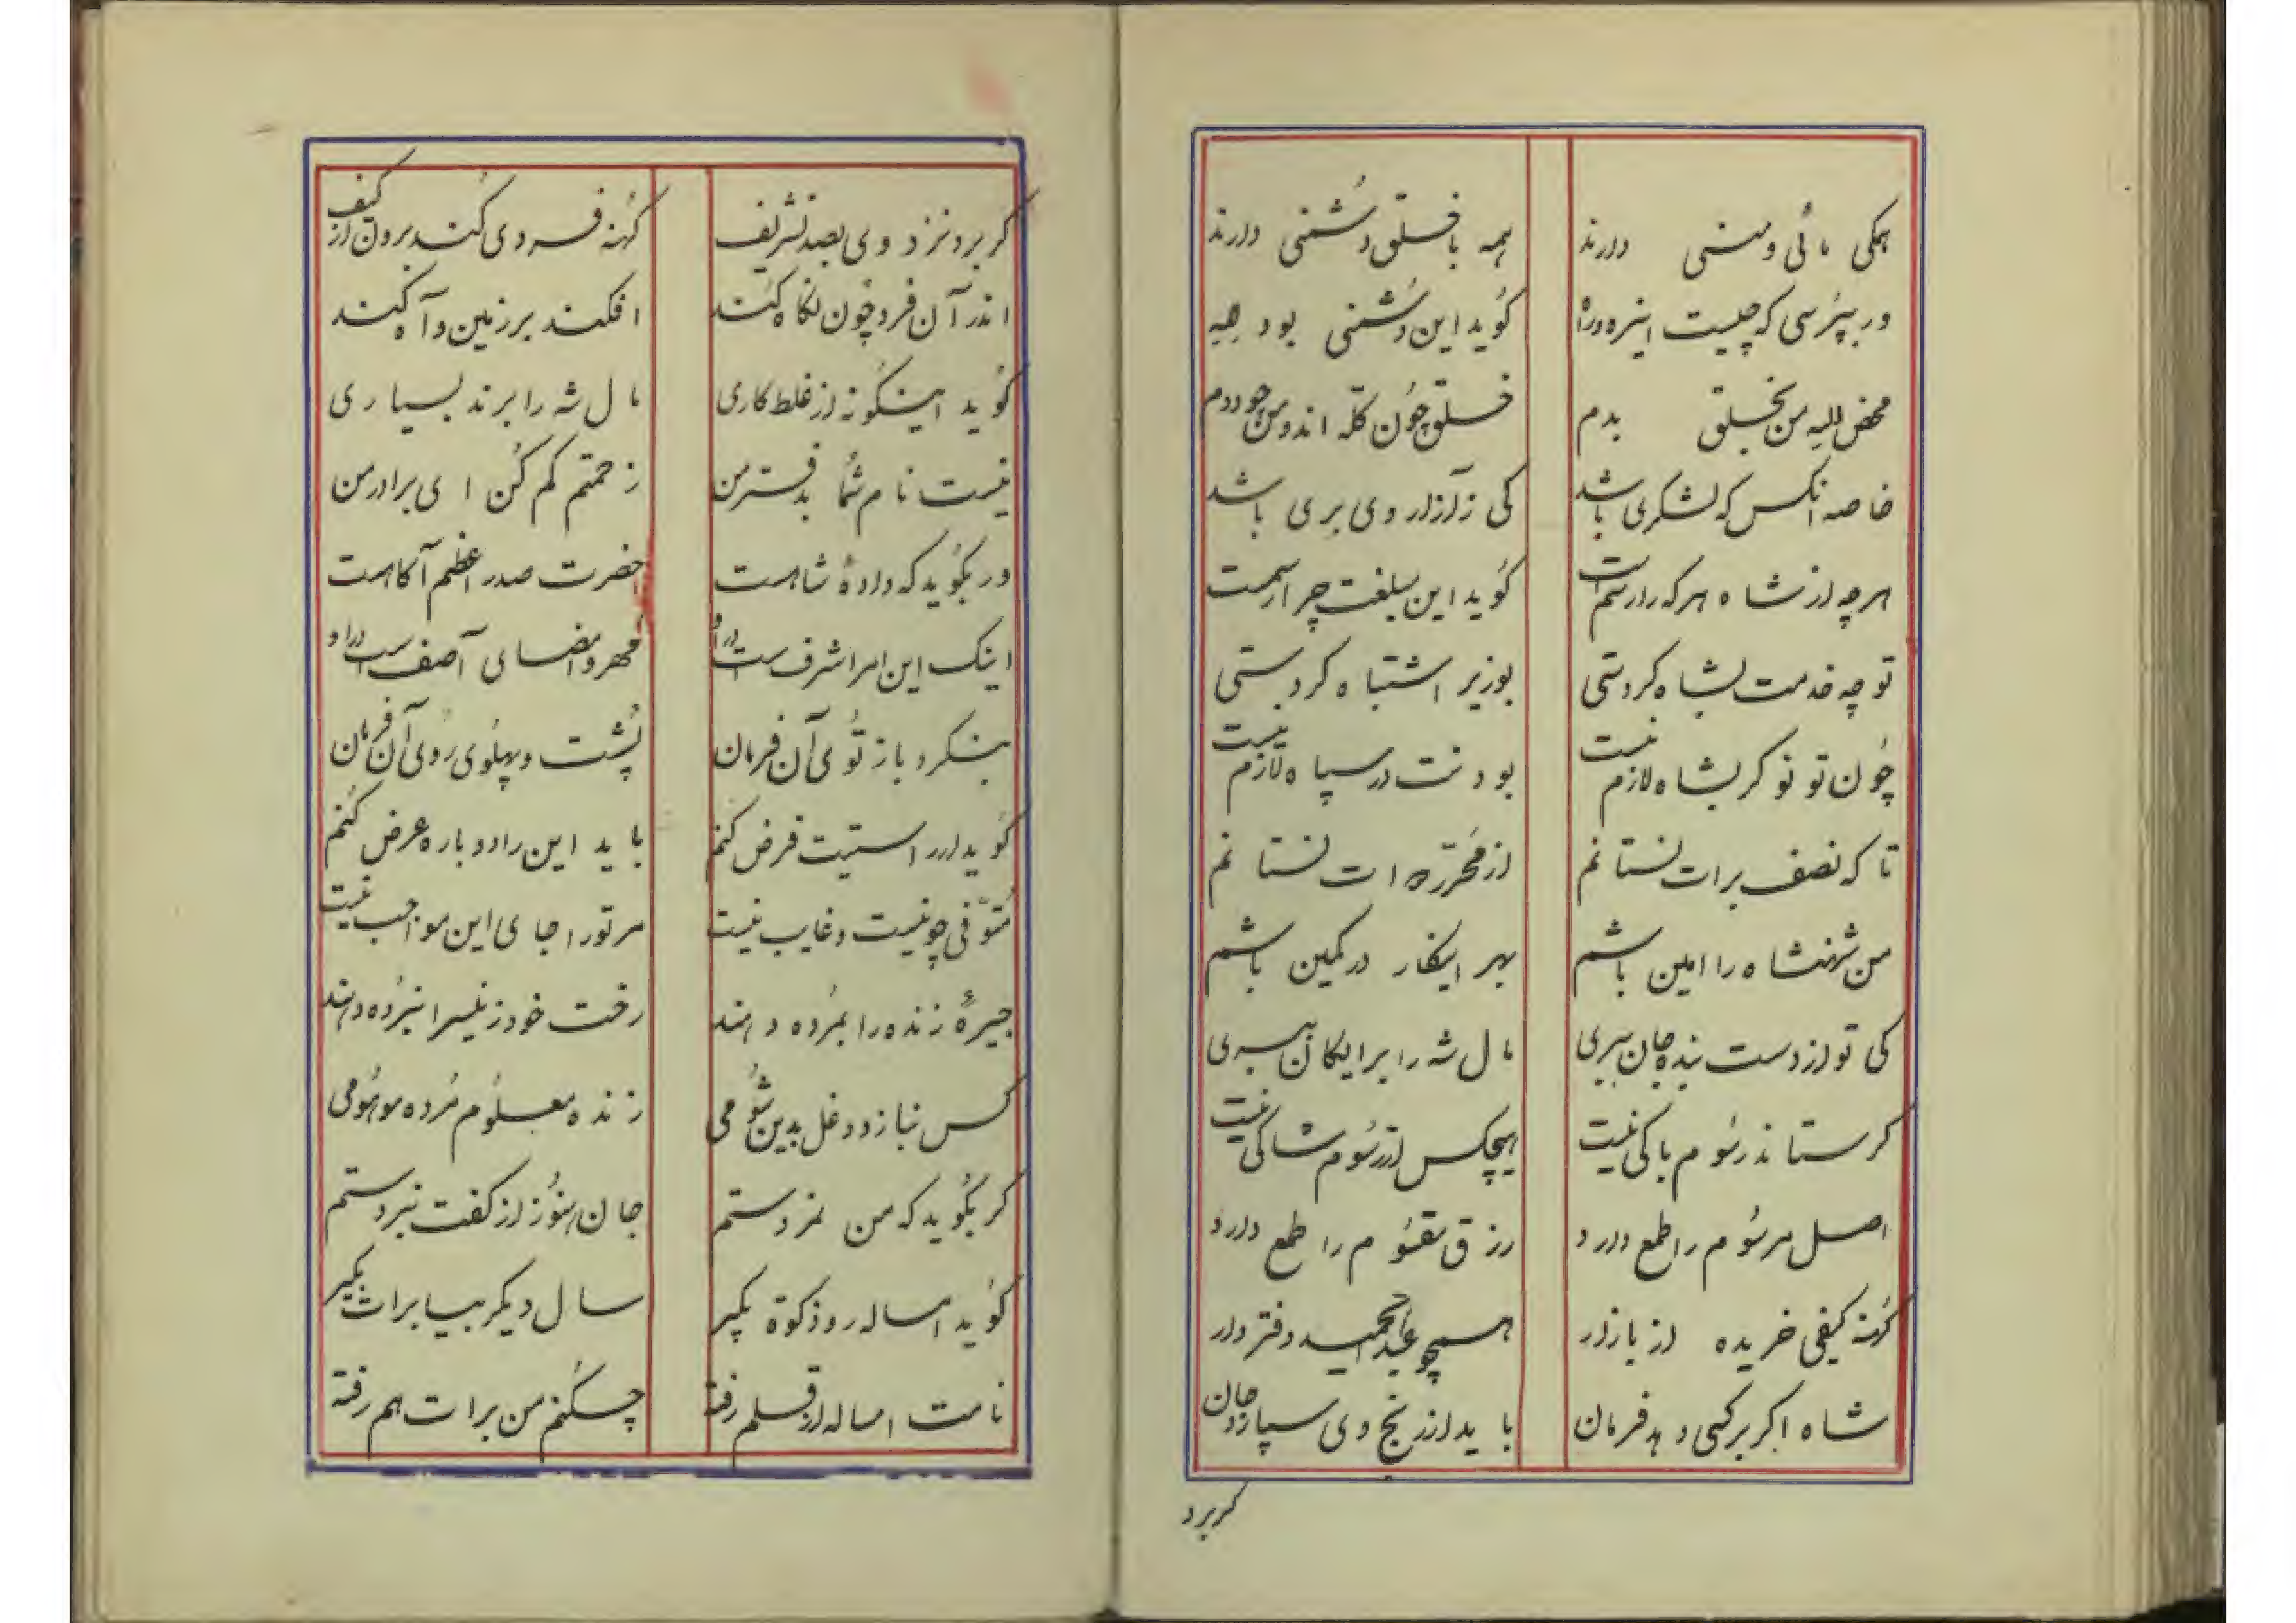 همکی مائی و منی دارند همه با خلق دشمنی دارند
ور بپرسی که چیست اینره و راه کوید این دشمنی بود
محض الله من بخلق بدم خلق چون کله اند و من چو ددم
خاصه انکس که لشکری باشد کی ز آزار وی بری باشد
هرچه از شاه هر که را رسمست کوید این مبلغت چرا رسمست
تو چه خدمت بشاه کردستی بوزیر اشتباه کردستی
چون تو نوکر بشاه لازم نیست بودنت در سپاه لازم نیست
تا که نصف برات نستانم از مقرره ات نستانم
من شهنشاه را امین باشم بهر اینکار در کمین باشم
کی تو از دست بنده جان ببری مال شه را برایکان ببری
کر ستاند رسوم باکی نیست هیچکس از رسوم شاکی نیست
اصل مرسوم را طمع دارد رزق مقسوم را طمع دارد
کهنه کیفی خریده از بازار همچو عبدالحمید دفتردار
شاه اکر بر کسی دهد فرمان باید از رنج وی سپارد جان
کر برد
کر برد نزد وی بصد تشریف کهنه فردی کند برون از کیف
اندر آن فرد چون نکاه کند افکند بر زمین و آه کند
کوید اینکونه از غلط کاری مال شه را برند بسیاری
نیست نام شما بدفتر من زحمتم کم کن ای برادر من
ور بکوید که دادهٔ شاهست حضرت صدر اعظم آکاهست
اینک این امر اشرفست در او مهر و امضای آصفست در او
بنکرد باز توی آن فرمان پشت و پهلوی روی آن فرمان
کوید ار راستیت فرض کنم باید این را دوباره عرض کنم
متوفی چو نیست و غایب نیست مر تو را جای این مواجب نیست
جیرهٔ زنده را بمرده دهند رخت خود زیلسرا نبرده دهند
کس نبازد دغل بدین شومی زنده معلوم مرده موهومی
کر بکوید که من نمردستم جان هنوز از کفت نبردستم
کوید امساله رو زکوة بکیر سال دیکر بیا برات بکیر
نامت امساله از قلم رفته چکنم من برات هم رفته